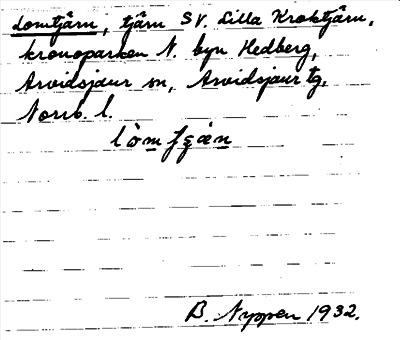 Lomtjärn, tjärn SV. Lilla Kroktjärn,
kronoparken N. byn Hedberg,
Arvidsjaur sn, Arvidsjaur tg.
Norrb. l.
B. Nyppen 1932.